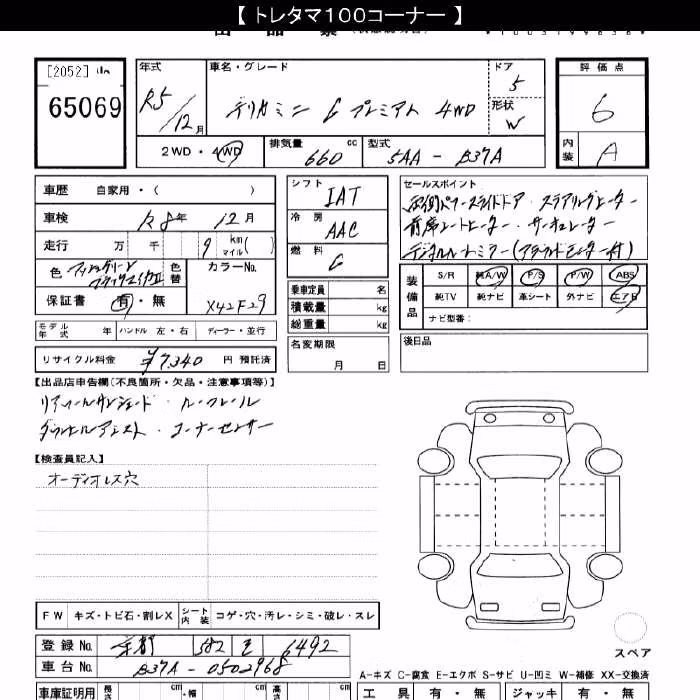 【 トレタマ100コーナー 】
[2052]
65069
年式 R5/12月
車名・グレード デリカミニ G プレミアム 4WD
ドア 5
形状 W
評価点 6
内装 A
2WD・4WD
排気量 660 cc
型式 5AA - B37A
車歴 自家用・( )
車検 R8年 12月
走行 万 千 9 km マイル( )
色
色替
カラーNo. X42F29
保証書 有・無
シフト IAT
冷房 AAC
燃料 G
乗車定員 名
積載量 kg
総重量 kg
名変期限 月 日
セールスポイント
両側パワースライドドア・ステアリングヒーター
前席シートヒーター・サーキュレーター
デジタルルームミラー(アラウンドモニター付)
装備品
S/R 純A/W P/S P/W ABS
純TV 純ナビ 革シート 外ナビ エアB
ナビ型番:
後日品
モデル年式 年 ハンドル 左・右 ディーラー・並行
リサイクル料金 ¥7,340 円 預託済
【出品店申告欄(不良箇所・欠品・注意事項等)】
リアロールサンシェード・ルーフレール
ダウンヒルアシスト・コーナーセンサー
【検査員記入】
オーディオレス穴
FW キズ・トビ石・割レX シート内装 コゲ・穴・汚レ・シミ・破レ・スレ
登録No. 京都 582 6492
車台No. B37A - 0502968
スペア
A-キズ C-腐食 E-エクボ S-サビ U-凹ミ W-補修 XX-交換済
車庫証明用 長 cm ・幅 cm 高 cm
工具 有・無 ジャッキ 有・無